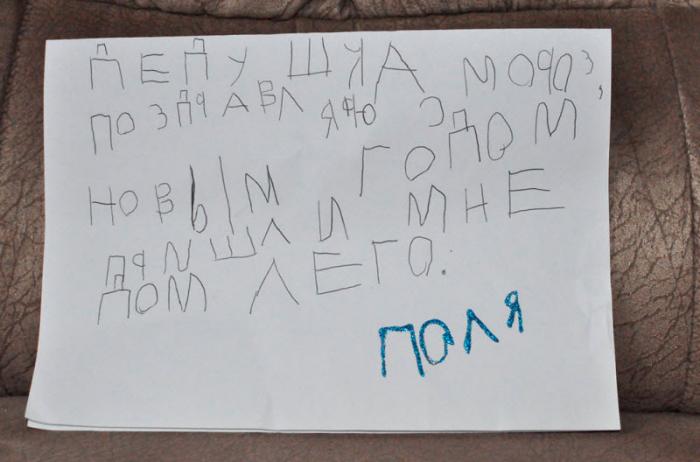 ДЕДУШКА МОРОЗ,
ПОЗДРАВЛЯЮ С
НОВЫМ ГОДОМ
И МНЕ
ПРИШЛИ
ДОМ ЛЕГО.
ПОЛЯ